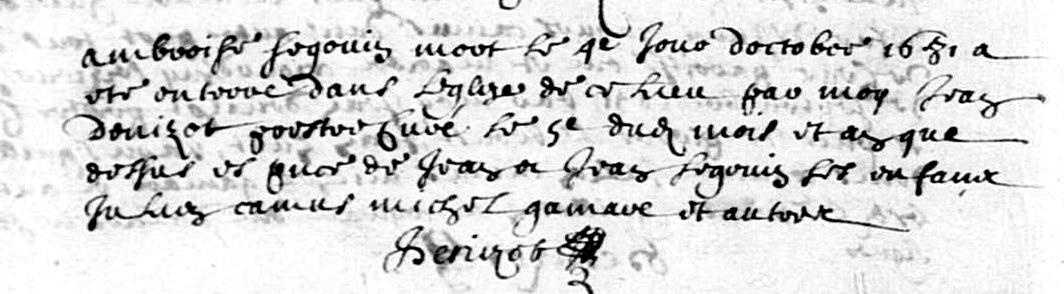 ambroise segouin mort le 4e Jour doctobre 1671 a
ete enterré dans leglize de ce lieu par moy Jean
Denizot prestre Curé le 5e dud mois et an que
dessus es pnce de Jean et Jean segouin ses enfans
Julien camus michel gamare et autres
Denizot